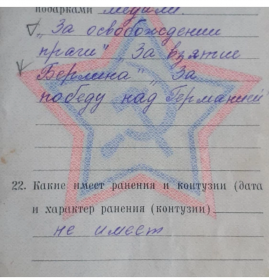 подарками медали
„За освобождении
праги" За взятие
Берлина" За
победу над Германией
22. Какие имеет ранения и контузии (дата
и характер ранения (контузии)
не имеет